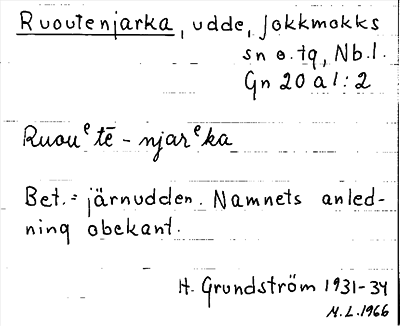 Ruoutenjarka, udde, Jokkmokks
sn o. tg, Nb.l.
Gn 20 a 1:2
Ruouᵉtē-njarᵉka
Bet. = järnudden. Namnets anled-
ning obekant.
H. Grundström 1931-34
M.L.1966